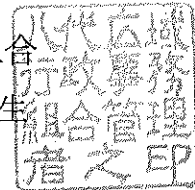 合
生
八代広域
行政事務
組合管理
者之印